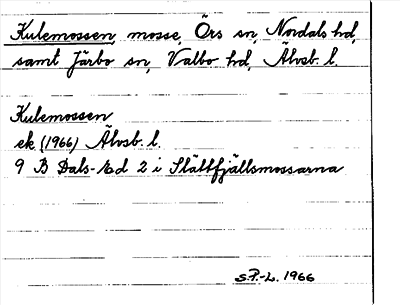 Kulemossen, mosse, Örs sn, Nordals hd,
samt Järbo sn, Valbo hd, Älvsb. l.
Kulemossen
ek (1966) Älvsb. l.
9 B Dals-Ed 2 i Slättfjällsmossarna
S.P.-L. 1966